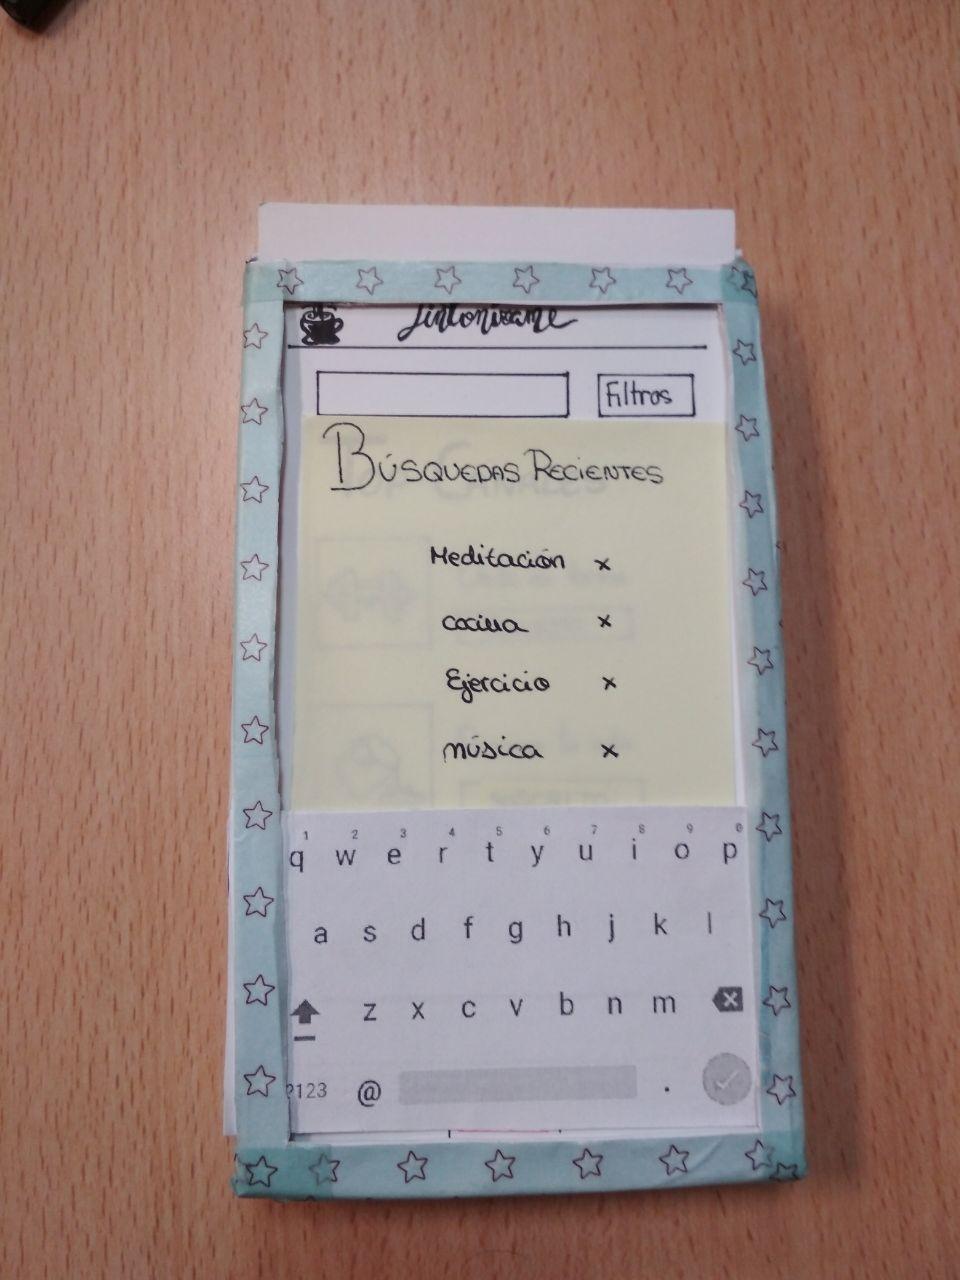 Sintonízame
Filtros
BÚSQUEDAS RECIENTES
Meditación x
cocina x
Ejercicio x
música x
1 2 3 4 5 6 7 8 9 0
q w e r t y u i o p
a s d f g h j k l
z x c v b n m
?123 @ .